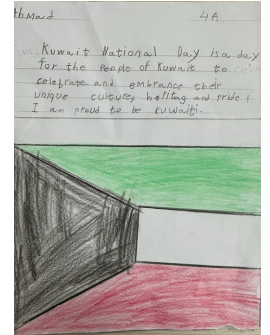 thmad 4A
Kuwait National Day is a day
for the People of Kuwait to
celebrate and embrance their
unique culture, heiitag and pride !
I am proud to be Kuwaiti.